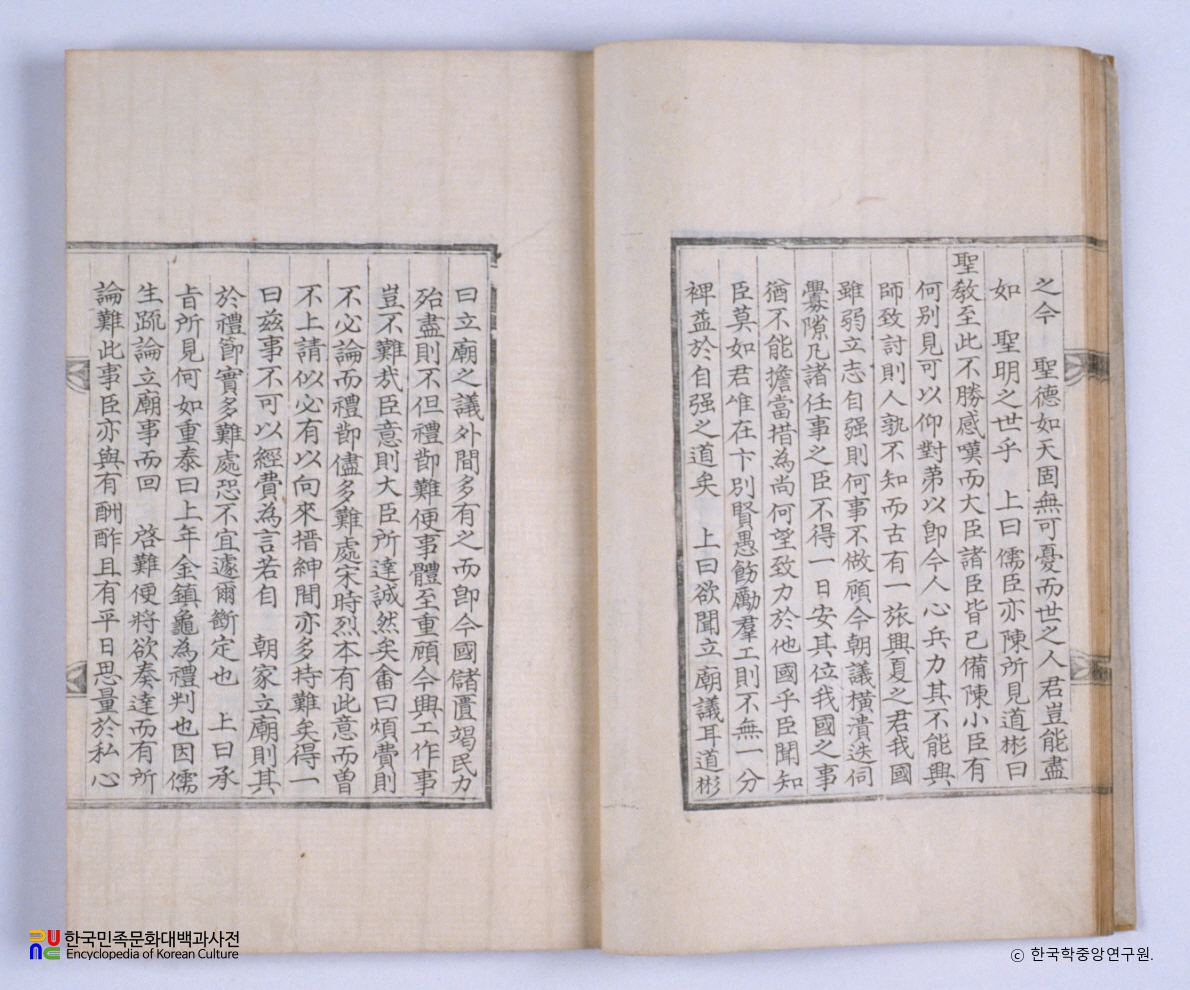 之今 聖德如天固無可憂而世之人君豈能盡
如 聖明之世乎 上曰儒臣亦陳所見道彬曰
聖敎至此不勝感嘆而大臣諸臣皆已備陳小臣有
何別見可以仰對第以卽今人心兵力其不能興
師致討則人孰不知而古有一旅興夏之君我國
雖弱立志自强則何事不做顧今朝議橫潰迭伺
釁隙凡諸任事之臣不得一日安其位我國之事
猶不能擔當措為尚何望致力於他國乎臣聞知
臣莫如君惟在卞別賢愚飭勵羣工則不無一分
裨益於自强之道矣 上曰欲聞立廟議耳道彬
曰立廟之議外間多有之而卽今國儲匱竭民力
殆盡則不但禮節難便事體至重顧今興工作事
豈不難哉臣意則大臣所達誠然矣畬曰煩費則
不必論而禮節儘多難處宋時烈本有此意而曾
不上請似必有以向來搢紳間亦多持難矣得一
曰玆事不可以經費為言若自 朝家立廟則其
於禮節實多難處恐不宜遽爾斷定也 上曰承
旨所見何如重泰曰上年金鎮龜為禮判也因儒
生疏論立廟事而回 啓難便將欲奏達而有所
論難此事臣亦與有酬酢且有平日思量於私心
한국민족문화대백과사전
Encyclopedia of Korean Culture
ⓒ 한국학중앙연구원.